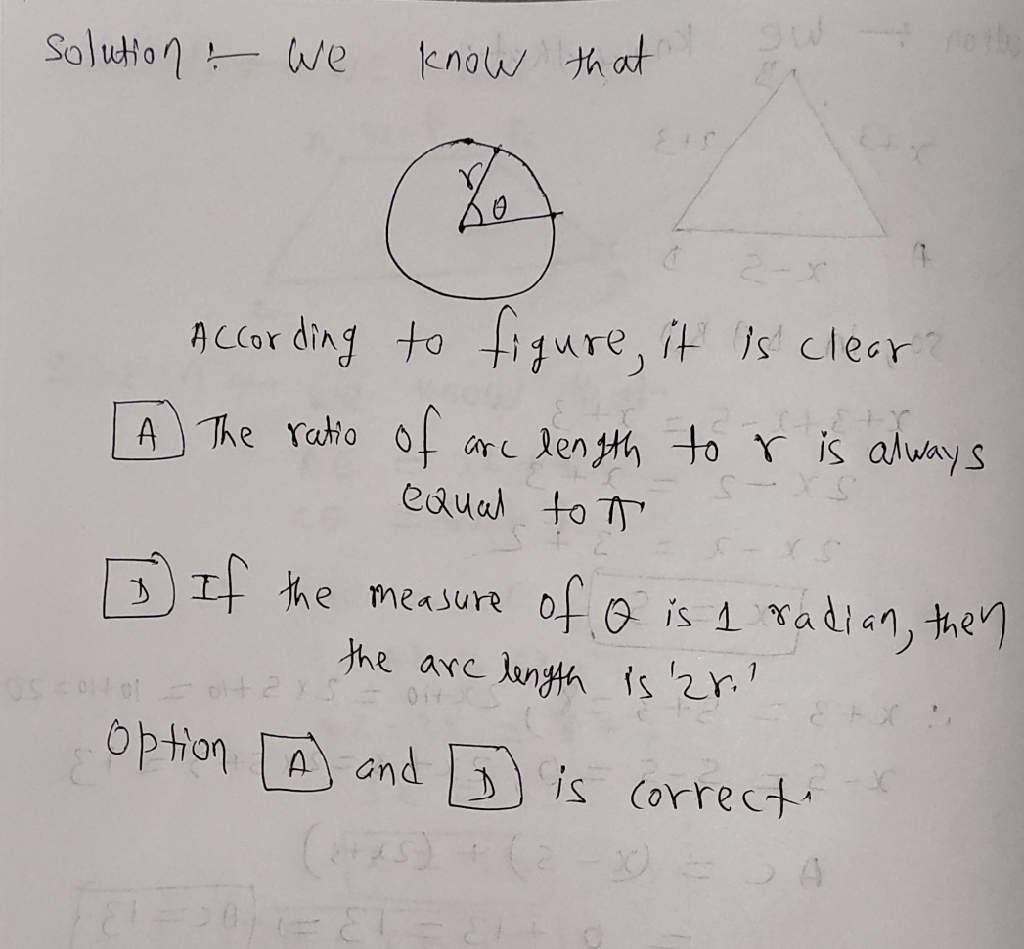 Solution :- We know that
r
θ
According to figure, it is clear
A The ratio of arc length to r is always
equal to π
D If the measure of θ is 1 radian, then
the arc length is '2r.'
Option A and D is correct.